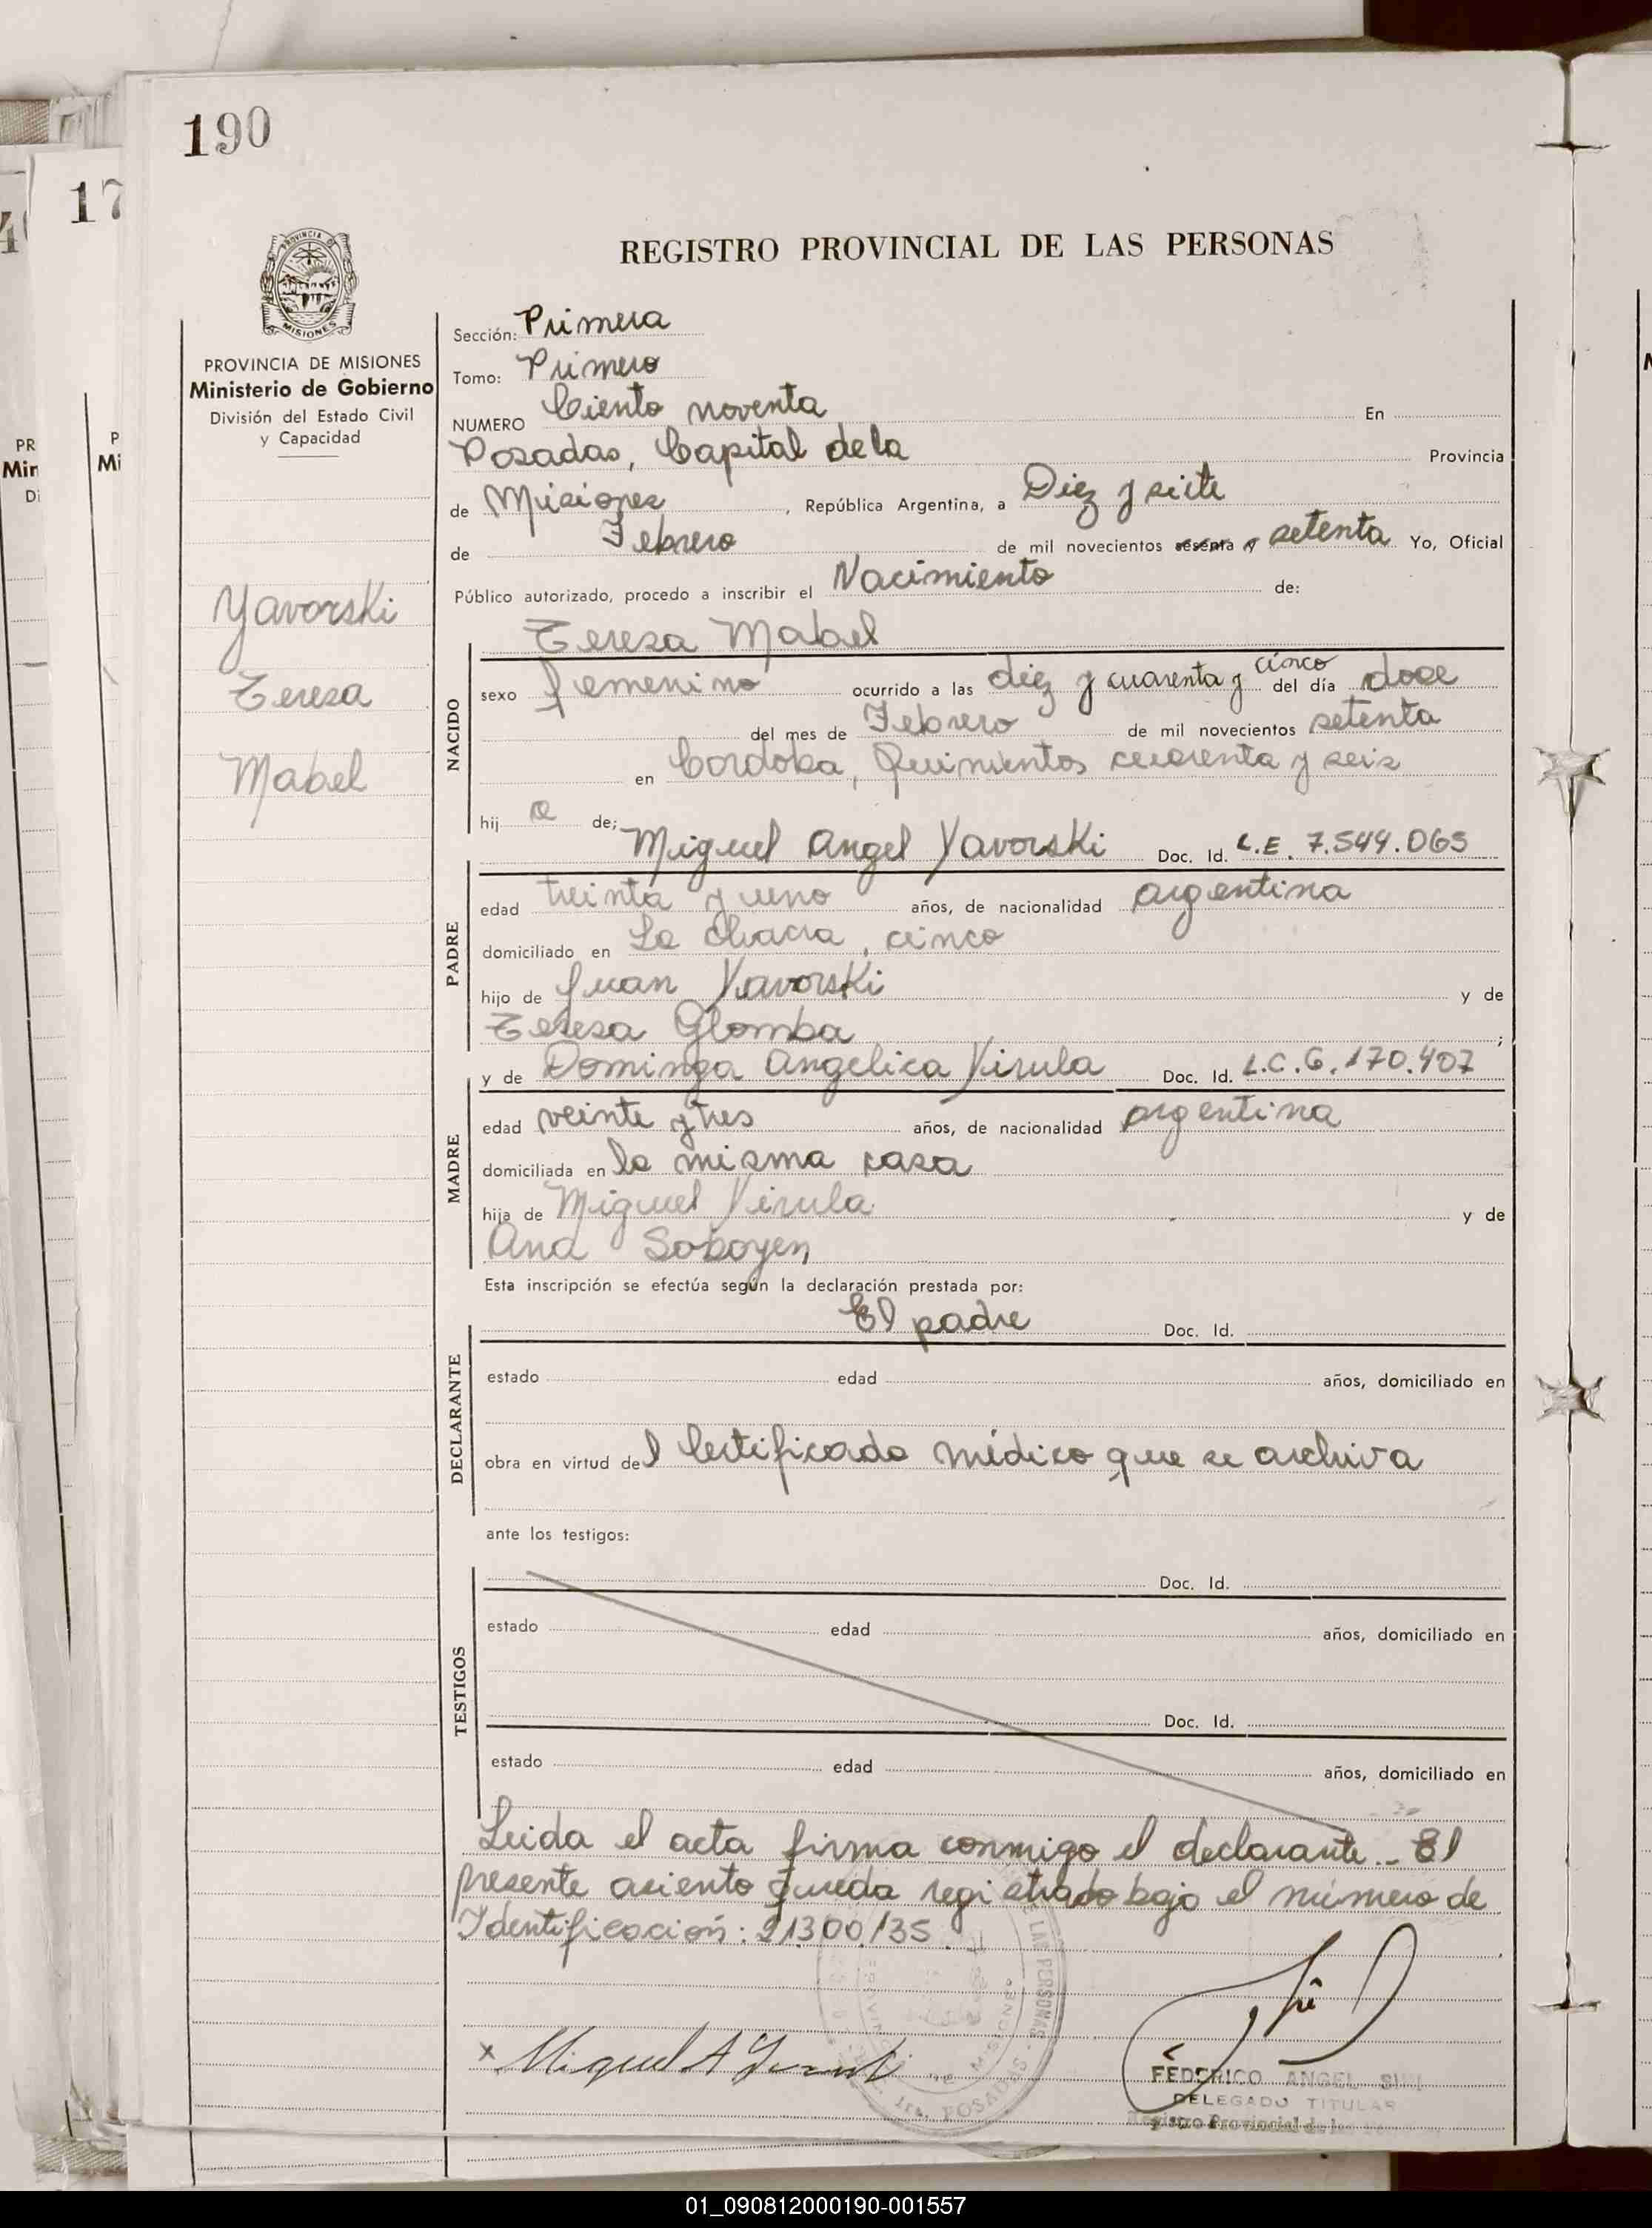 190
17
REGISTRO PROVINCIAL DE LAS PERSONAS
PROVINCIA DE
MISIONES
PROVINCIA DE MISIONES
Ministerio de Gobierno
División del Estado Civil
y Capacidad
Yavorski
Teresa
Mabel
Sección: Primera
Tomo: Primero
NUMERO Ciento noventa En
Posadas, Capital de la Provincia
de Misiones, República Argentina, a Diez y siete
de Febrero de mil novecientos sesenta y setenta Yo, Oficial
Público autorizado, procedo a inscribir el Nacimiento de:
Teresa Mabel
NACIDO
sexo femenino ocurrido a las diez y cuarenta y cinco del día doce
del mes de Febrero de mil novecientos setenta
en Cordoba, Quinientos cuarenta y seis
hij a de; Miguel Angel Yavorski Doc. Id. L.E. 7.544.065
PADRE
edad treinta y uno años, de nacionalidad argentina
domiciliado en La Chacra, cinco
hijo de Juan Yavorski y de
Teresa Glomba ;
y de Dominga Angelica Virula Doc. Id. L.C. 6.170.407
MADRE
edad veinte y tres años, de nacionalidad argentina
domiciliada en la misma casa
hija de Miguel Virula y de
Ana Soboyen
Esta inscripción se efectúa según la declaración prestada por:
El padre Doc. Id.
DECLARANTE
estado edad años, domiciliado en
obra en virtud del Certificado médico que se archiva
ante los testigos:
Doc. Id.
TESTIGOS
estado edad años, domiciliado en
Doc. Id.
estado edad años, domiciliado en
Leida el acta firma conmigo el declarante.. El
presente asiento queda registrado bajo el número de
Identificación: 21300/135
x Miguel A
LAS PERSONAS
POSADAS
FEDERICO ANGEL
DELEGADO TITULAR
Registro Provincial de las
01_090812000190-001557